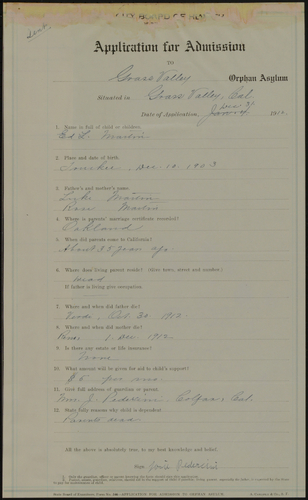 Application for Admission
TO
Grass Valley Orphan Asylum
Situated in Grass Valley, Cal
Date of Application, 191
1. Name in full of child or children.
Ed L. Martin
2. Place and date of birth.
Truckee, Dec. 10. 1903
3. Father's and mother's name.
Martin
Rose Martin
4. Where is parents' marriage certificate recorded?
Oakland
5. When did parents come to California?
About 35 years ago.
6. Where does living parent reside? Give town, street and number.
Dead
If father is living give occupation
7. Where and when did father die?
Oct. 30. 1912.
8. Where and when did mother die?
1. Dec 1912
9. Is there any estate or life insurance?
None
10. What amount will be given for aid to child's support?
$5 per mo.
11. Give full address of guardian or parent.
Mrs. J. Colfax, Cal.
12. State fully reasons why child is dependent.
Parents dead
All the above is absolutely true, to my best knowledge and belief.
Sign